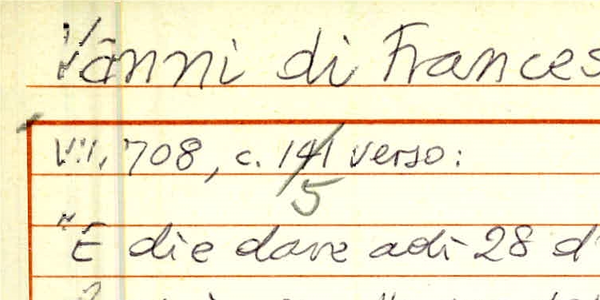 Vanni di Frances
VII, 708, c. 141 verso:
5
"E die dare adi 28 d